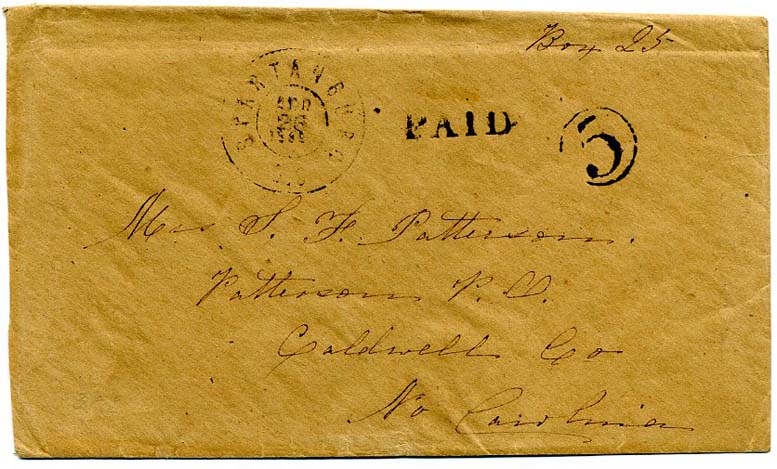 Box 25
SPARTANBURG
APR
26
PAID
5
Mrs S. F. Patterson.
Patterson P.O.
Caldwell Co
No Carolina